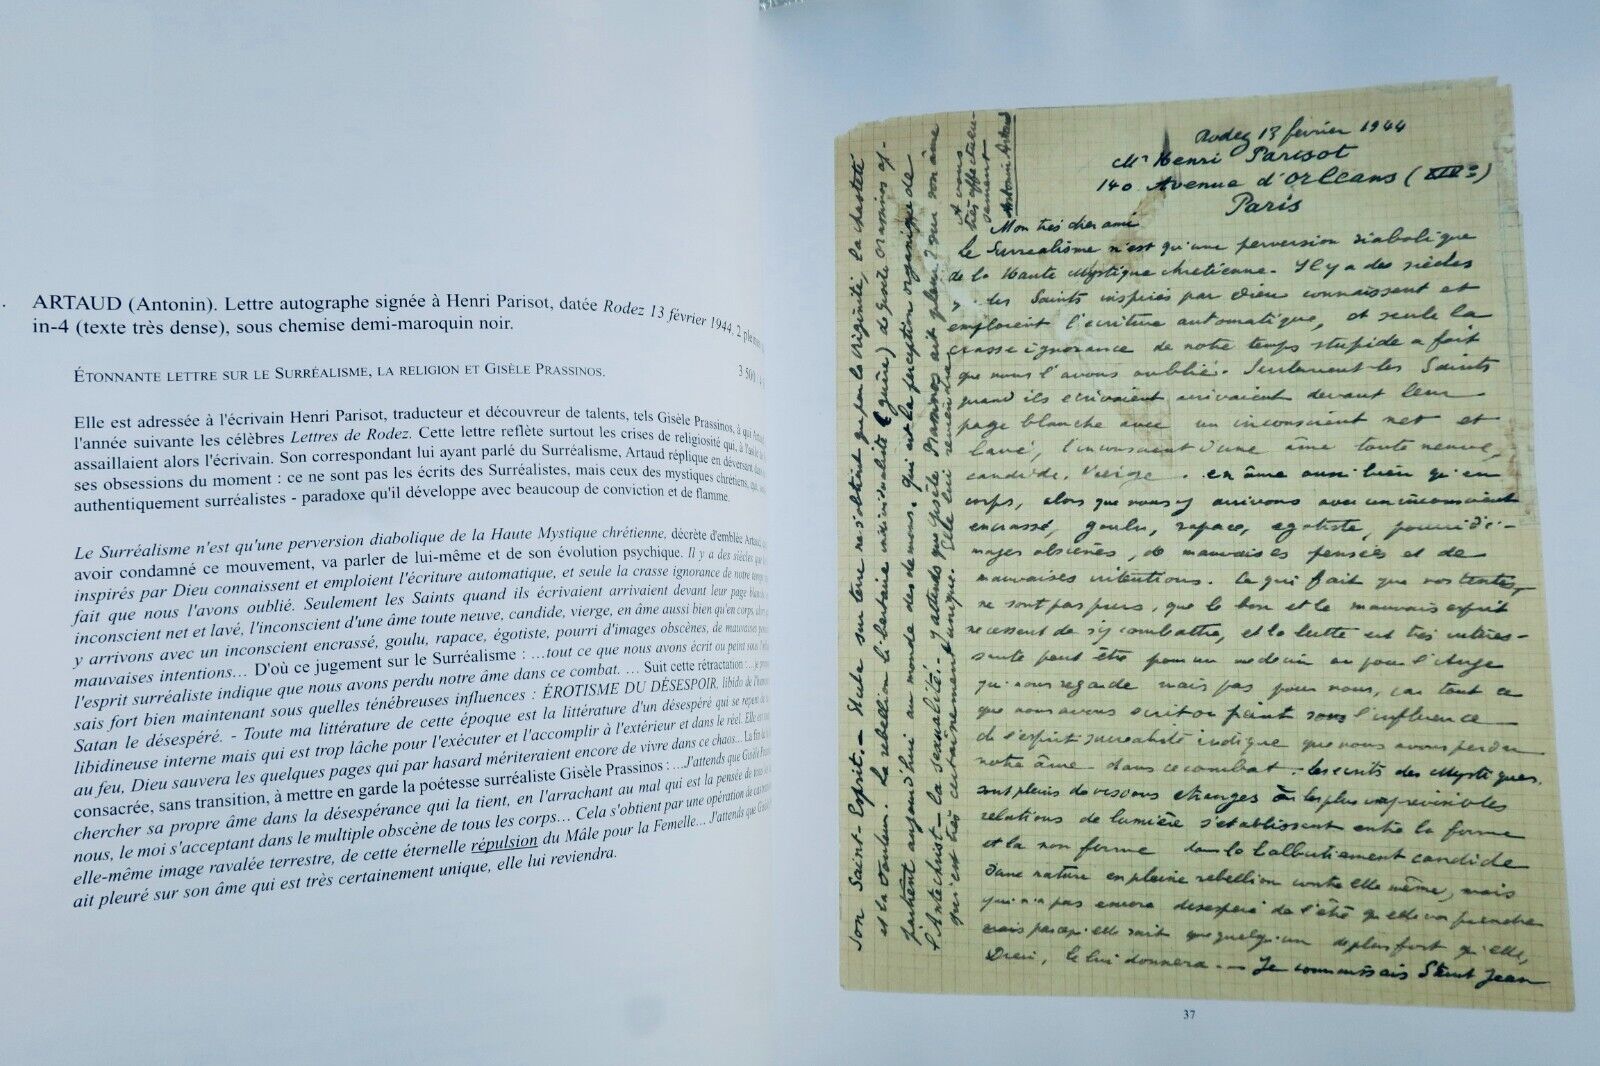 ARTAUD (Antonin). Lettre autographe signée à Henri Parisot, datée Rodez 13 février 1944. 2
in-4 (texte très dense), sous chemise demi-maroquin noir.
ÉTONNANTE LETTRE SUR LE SURRÉALISME, LA RELIGION ET GISÈLE PRASSINOS.
3 500
Elle est adressée à l'écrivain Henri Parisot, traducteur et découvreur de talents, tels Gisèle Prassinos, à qui
l'année suivante les célèbres Lettres de Rodez. Cette lettre reflète surtout les crises de religiosité qui, à
assaillaient alors l'écrivain. Son correspondant lui ayant parlé du Surréalisme, Artaud réplique en déversant
ses obsessions du moment : ce ne sont pas les écrits des Surréalistes, mais ceux des mystiques chrétiens, qui
authentiquement surréalistes - paradoxe qu'il développe avec beaucoup de conviction et de flamme.
Le Surréalisme n'est qu'une perversion diabolique de la Haute Mystique chrétienne, décrète d'emblée Artaud,
avoir condamné ce mouvement, va parler de lui-même et de son évolution psychique. Il y a des siècles que
inspirés par Dieu connaissent et emploient l'écriture automatique, et seule la crasse ignorance de notre temps
fait que nous l'avons oublié. Seulement les Saints quand ils écrivaient arrivaient devant leur page
inconscient net et lavé, l'inconscient d'une âme toute neuve, candide, vierge, en âme aussi bien qu'en corps,
y arrivons avec un inconscient encrassé, goulu, rapace, égotiste, pourri d'images obscènes, de mauvaises
mauvaises intentions... D'où ce jugement sur le Surréalisme : ...tout ce que nous avons écrit ou peint sous
l'esprit surréaliste indique que nous avons perdu notre âme dans ce combat. ... Suit cette rétractation : ...je
sais fort bien maintenant sous quelles ténébreuses influences : ÉROTISME DU DÉSESPOIR, libido de
Satan le désespéré. - Toute ma littérature de cette époque est la littérature d'un désespéré qui se repent
libidineuse interne mais qui est trop lâche pour l'exécuter et l'accomplir à l'extérieur et dans le réel. Elle
au feu, Dieu sauvera les quelques pages qui par hasard mériteraient encore de vivre dans ce chaos... La fin
consacrée, sans transition, à mettre en garde la poétesse surréaliste Gisèle Prassinos : ...J'attends que Gisèle
chercher sa propre âme dans la désespérance qui la tient, en l'arrachant au mal qui est la pensée de
nous, le moi s'acceptant dans le multiple obscène de tous les corps... Cela s'obtient par une opération de
elle-même image ravalée terrestre, de cette éternelle répulsion du Mâle pour la Femelle... J'attends que
ait pleuré sur son âme qui est très certainement unique, elle lui reviendra.
Rodez 13 février 1944
Mr Henri Parisot
140 Avenue d'Orléans (
Paris
Mon très cher ami
Le Surréalisme n'est qu'une perversion diabolique
de la Haute Mystique chrétienne. Il y a des siècles
que les Saints inspirés par Dieu connaissent et
emploient l'écriture automatique, et seule la
crasse ignorance de notre temps stupide a fait
que nous l'avons oublié. Seulement les Saints
quand ils écrivaient arrivaient devant leur
page blanche avec un inconscient net et
lavé, l'inconscient d'une âme toute neuve,
candide, vierge, en âme aussi bien qu'en
corps, alors que nous y arrivons avec un inconscient
encrassé, goulu, rapace, égotiste, pourri d'i-
mages obscènes, de mauvaises pensées et de
mauvaises intentions. Ce qui fait que nos textes
ne sont pas purs, que le bon et le mauvais esprit
ne cessent de s'y combattre, et la lutte est très intéres-
sante peut être pour un médecin ou pour l'Ange
qui nous regarde mais pas pour nous, car tout ce
que nous avons écrit ou peint sous l'influence
de l'esprit surréaliste indique que nous avons perdu
notre âme dans ce combat. - Les écrits des Mystiques
sont pleins de visions étranges où les plus imprévisibles
relations de lumière s'établissent entre la forme
et la non forme dans le balbutiement candide
d'une nature en pleine rébellion contre elle même, mais
qui n'a pas encore désespéré de l'été qu'elle va prendre
mais parce qu'elle sait que quelqu'un de plus fort qu'elle,
Dieu, le lui donnera. — Je connaissais Saint Jean
Son Saint-Esprit. - Etube sur terre ne s'obtient que par la virginité, la chasteté
et la douleur. La rebellion libertaire individualité
partent aujourd'hui au monde des démons. qui est la perception organique de
l'Antéchrist - la sexualité. J'attends que Gisèle Prassinos ait pleuré sur son âme
qui est très certainement unique. Elle lui reviendra.
A vous
très affectueu-
sement
Antonin Artaud
37